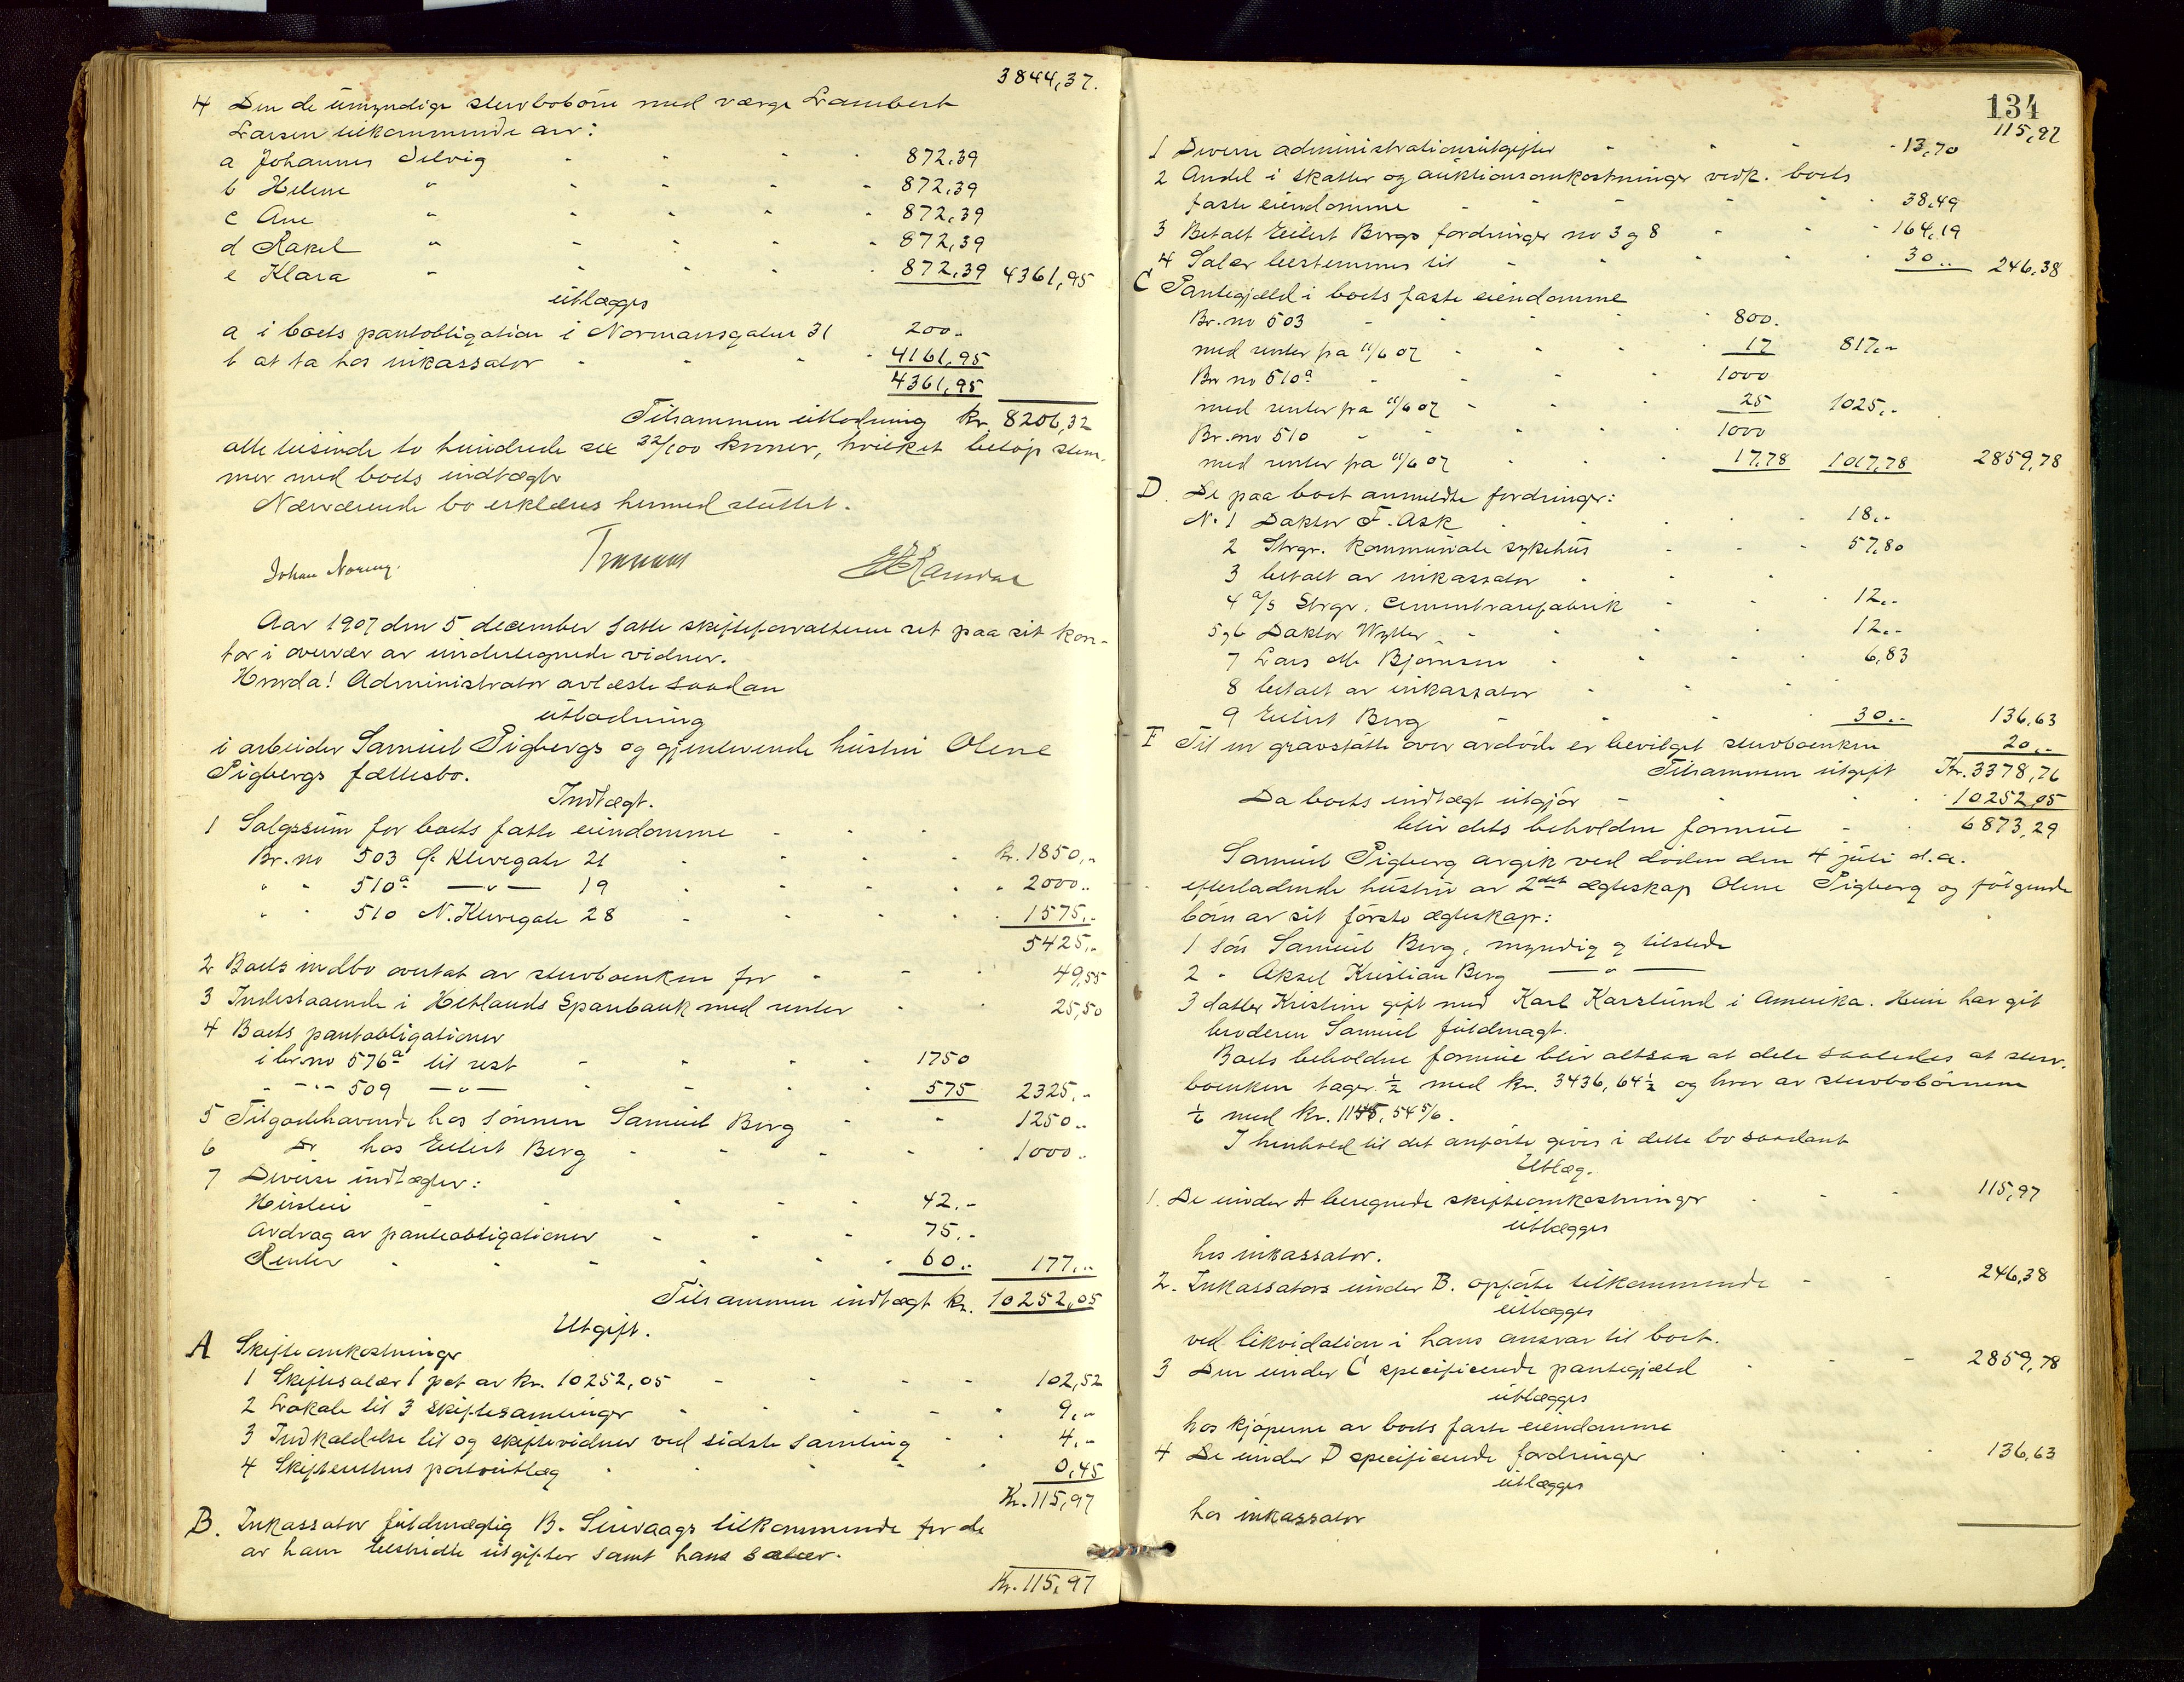 3844,37.
4 Den de umyndige stervbobörn med værge Lambert
Larsen tilkommende arv:
a Johannes Selvig - - - - 872,39
b Helene " - - - - 872,39
c Ane " - - - - 872,39
d Rakel " - - - - 872,39
e Klara " - - - - 872,39 4361,95
utlægges
a i boets pantobligation i Normansgaten 31 200.-
b at ta hos inkassator - - - 4161,95
4361,95
Tilsammen utlodning kr. 8206,32
otte tusinde to hundrede sex 32/100 kroner, hvilket belöp stem-
mer med boets indtægter
Nærværende bo erklæres hermed sluttet.
Johan Noreng.
Aar 1907 den 5 december satte skifteforvalteren ret paa sit kon-
tor i overvær av undertegnede vidner.
Hvorda! Administrator avlæste saadan
utlodning
i arbeider Samuel Sigbergs og gjenlevende hustru Olene
Sigbergs fællesbo.
Indtægt.
1 Salgssum for boets faste eiendomme - - -
Br. no 503 G. Klevegate 21 - - - Kr. 1850,-
" " 510a —"— 19 - - - " 2000..
" " 510 N. Klevegate 28 - - - 1575,-
5425,-
2 Boets indbo overtat av stervboenken for - - - 49,55
3 Indestaaende i Hetlands Sparebank med renter - - 25,50
4 Boets pantobligationer
i br.no 576a til rest - - - - 1750
" - " - 509 —"— - - - - 575 2325,-
5 Tilgodehavende hos sönnen Samuel Berg - - 1250..
6 Do hos Eilert Berg - - - - 1000..
7 Diverse indtægter:
Husleie - - - - 42.-
Avdrag av panteobligationer - - - 75.-
Renter - - - - - 60.. 177,..
Tilsammen indtægt kr. 10252,05
Utgift.
A Skifteomkostninger
1 Skiftesalær 1 pct av kr. 10252,05 - - - - 102,52
2 Lokale til 3 skiftesamlinger - - - - 9,-
3 Indkaldelse til og skiftevidner ved sidste samling - - 4,-
4 Skifterettens portoutlæg - - - - 0,45
Kr. 115,97
B. Inkassator fuldmægtig B. Sunvaags tilkommende for de
av ham bestridte utgifter samt hans salær.
Kr. 115,97
134
115,97
1 Diverse administrationsutgifter - - - - 13,70
2 Andel i skatter og auktionsomkostninger vedk. boets
faste eiendomme - - - - - 38,49
3 Betalt Eilert Bergs fordringer no 3 og 8 - - - 164,19
4 Salær bestemmes til - - - - 30.. 246,38
C Pantegjæld i boets faste eiendomme
Br. no 503 - - - - 800.
med renter fra 11/6 07 - - - - 17 817,-
Br no 510a - - - - 1000
med renter fra 11/6 07 - - - 25 1025,-
Br. no 510 - - - - 1000
med renter fra 11/6 07 - - - 17,78 1017,78 2859,78
D. De paa boet anmeldte fordringer:
No. 1 Doktor F. Ask - - - - 18,-
2 Stvgr. kommunale sykehus - - - 57,80
3 betalt av inkassator - - -
4 a/s Stvgr. Cementvarefabrik - - - 12,-
5 og 6 Doktor Wyller - - - - 12,-
7 Lars M. Bjørnsen - - - - 6,83
8 betalt av inkassator - - -
9 Eilert Berg - - - - 30.- 136,63
F Til en gravstötte over avdöde er bevilget stervboenken 20..
Tilsammen utgift Kr. 3378,76
Da boets indtægt utgjör - - - 10252,05
blir dets beholdne formue - - 6873,29
Samuel Sigberg avgik ved döden den 4 juli d.a.
efterladende hustru av 2det ægteskap Olene Sigberg og fölgende
börn av sit förste ægteskap:
1 sön Samuel Berg, myndig og tilstede
2 " Aksel Kristian Berg —"—
3 datter Kristine gift med Karl Karslund i Amerika. Hun har git
broderen Samuel fuldmagt.
Boets beholdne formue blir altsaa at dele saaledes at sterv-
boenken tager 1/2 med kr. 3436,64 1/2 og hver av stervbobörnene
1/6 med kr. 1145,54 5/6.
I henhold til det anförte gives i dette bo saadant
Utlæg.
1. De under A beregnede skifteomkostninger - - - 115,97
utlægges
hos inkassator.
2. Inkassators under B. opförte tilkommende - - 246,38
utlægges
ved likvidation i hans ansvar til boet.
3 Den under C specificerede pantegjæld - - - 2859,78
utlægges
hos kjöperne av boets faste eiendomme
4 De under D specificerede fordringer - - - - 136,63
utlægges
hos inkassator